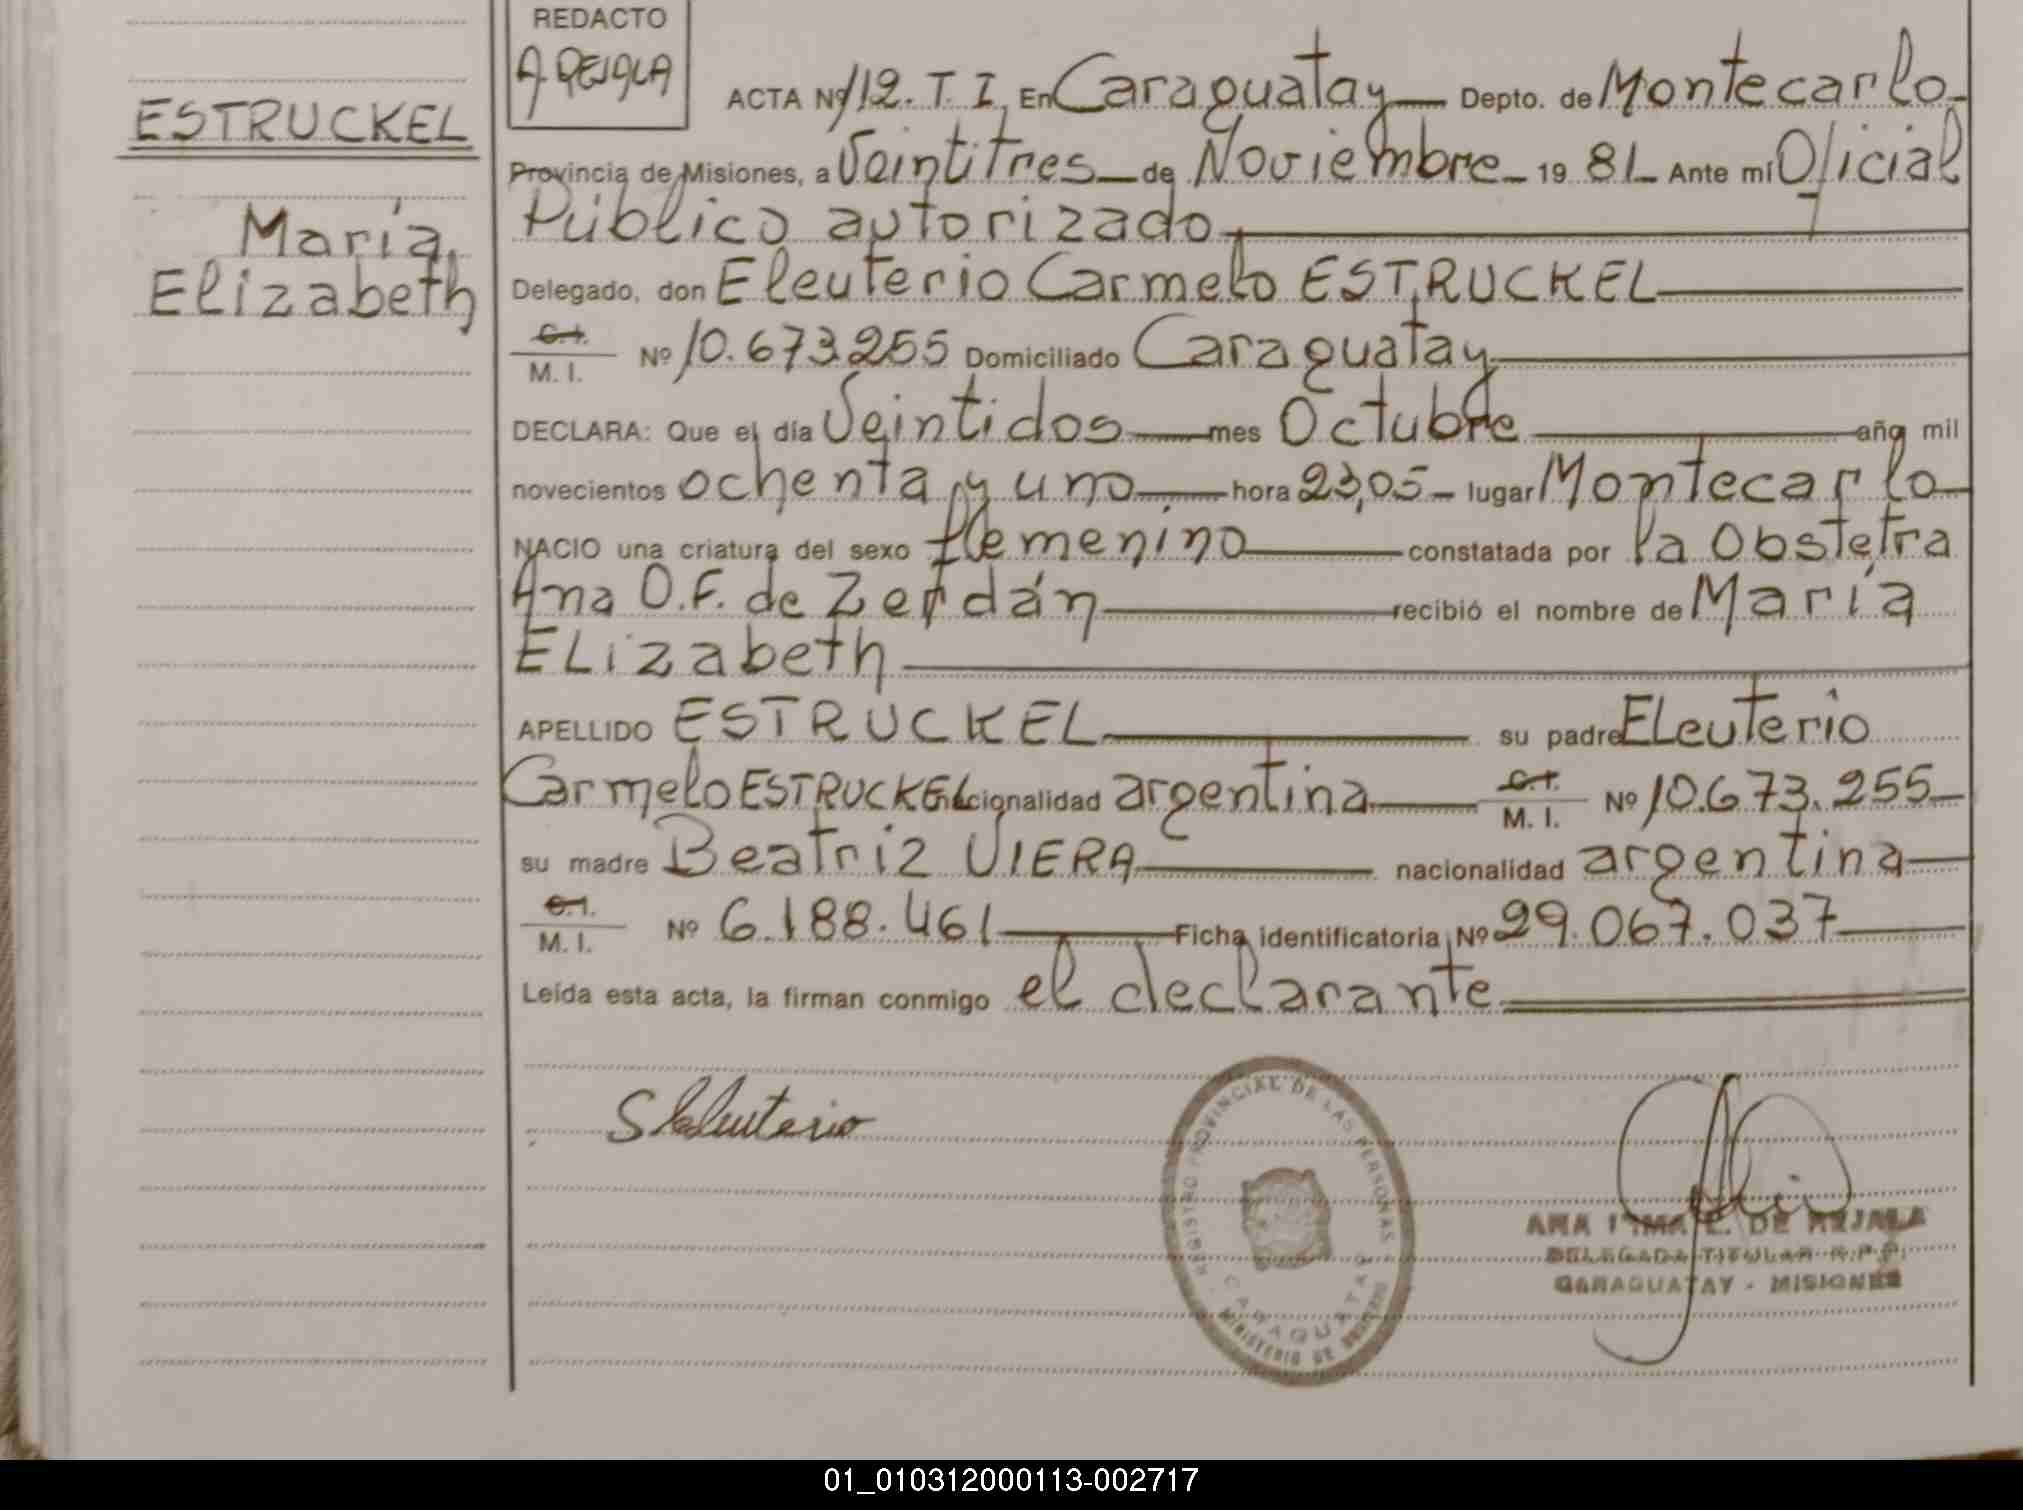 REDACTO
A. REJALA
ESTRUCKEL
María
Elizabeth
ACTA Nº 112. T. I. En Caraguatay Depto. de Montecarlo
Provincia de Misiones, a Veintitres de Noviembre 19 81 Ante mí Oficial
Público autorizado
Delegado, don Eleuterio Carmelo ESTRUCKEL
C.I. / M. I. Nº 10.673.255 Domiciliado Caraguatay
DECLARA: Que el día Veintidos mes Octubre año mil
novecientos ochenta y uno hora 23,05 lugar Montecarlo
NACIO una criatura del sexo femenino constatada por la Obstetra
Ana O.F. de Zerdán recibió el nombre de María
Elizabeth
APELLIDO ESTRUCKEL su padre Eleuterio
Carmelo ESTRUCKEL nacionalidad argentina C.I. / M. I. Nº 10.673.255
su madre Beatriz VIERA nacionalidad argentina
C.I. / M. I. Nº 6.188.461 Ficha identificatoria Nº 29.067.037
Leída esta acta, la firman conmigo el declarante
Eleuterio
REGISTRO PROVINCIAL DE LAS PERSONAS
CARAGUATAY
MINISTERIO DE GOBIERNO
ANA IRMA E. DE REJALA
DELEGADA TITULAR R.P.P.
CARAGUATAY - MISIONES
01_010312000113-002717